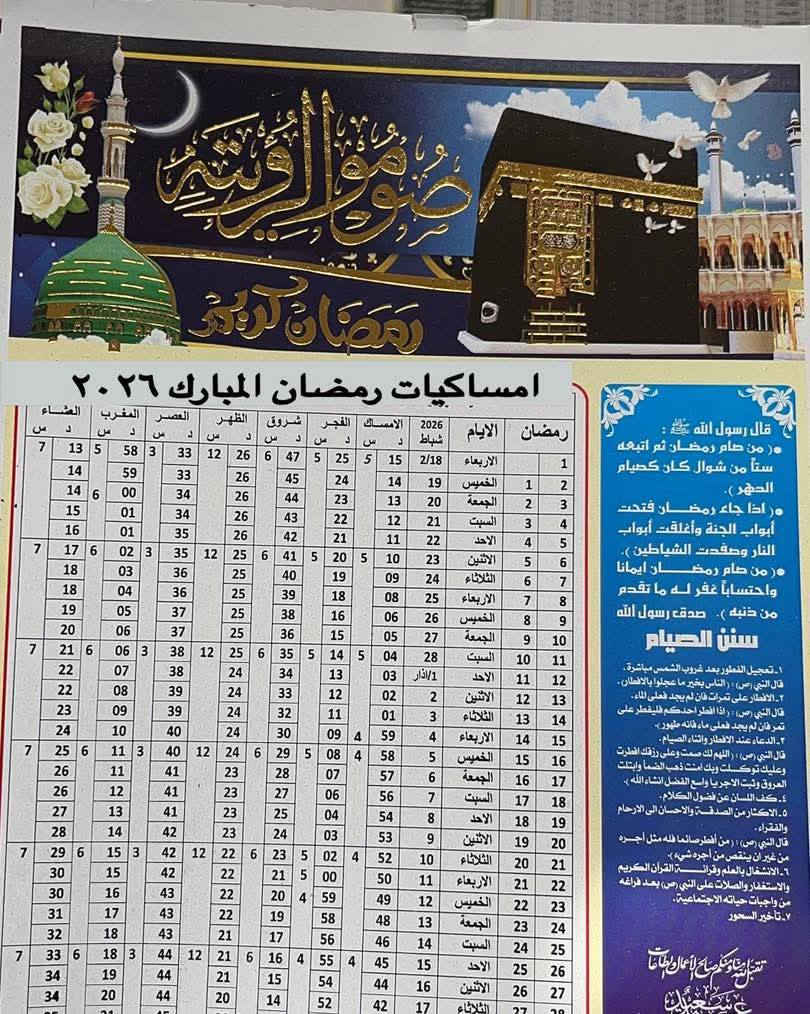 صوموا لرؤيته
رمضان كريم
امساكيات رمضان المبارك ٢٠٢٦
رمضان الايام 2026 شباط الامساك الفجر شروق الظهر العصر المغرب العشاء
د س د س د س د س د س د س د س
1 الاربعاء 2/18 15 5 25 5 47 6 26 12 33 3 58 5 13 7
2 1 الخميس 19 14 24 45 26 33 59 14
3 2 الجمعة 20 13 23 44 26 34 00 6 14
4 3 السبت 21 12 22 43 26 34 01 15
5 4 الاحد 22 11 21 42 26 35 01 16
6 5 الاثنين 23 10 5 20 5 41 6 25 12 35 3 02 6 17 7
7 6 الثلاثاء 24 09 19 40 25 36 03 18
8 7 الاربعاء 25 08 18 39 25 36 04 18
9 8 الخميس 26 06 16 38 25 37 05 19
10 9 الجمعة 27 05 15 36 25 37 06 20
11 10 السبت 28 04 5 14 5 35 6 25 12 38 3 06 6 21 7
12 11 الاحد 1/اذار 03 13 34 24 38 07 22
13 12 الاثنين 2 02 12 33 24 39 08 22
14 13 الثلاثاء 3 01 11 32 24 39 09 23
15 14 الاربعاء 4 59 4 09 30 24 40 10 24
16 15 الخميس 5 58 4 08 5 29 6 24 12 40 3 11 6 25 7
17 16 الجمعة 6 57 07 28 23 41 11 26
18 17 السبت 7 56 06 27 23 41 12 26
19 18 الاحد 8 54 04 25 23 41 13 27
20 19 الاثنين 9 53 03 24 23 42 14 28
21 20 الثلاثاء 10 52 4 02 5 23 6 22 12 42 3 15 6 29 7
22 21 الاربعاء 11 50 00 5 21 22 42 15 30
23 22 الخميس 12 49 59 4 20 22 43 16 30
24 23 الجمعة 13 48 58 19 22 43 17 31
25 24 السبت 14 46 56 17 21 43 18 32
26 25 الاحد 15 45 4 55 4 16 6 21 12 44 3 18 6 33 7
27 26 الاثنين 16 44 54 15 21 44 19 34
28 27 الثلاثاء 17 42 52 14 20 44 20 34
قال رسول الله ﷺ :
( من صام رمضان ثم اتبعه
ستاً من شوال كان كصيام
الدهر ).
( اذا جاء رمضان فتحت
أبواب الجنة وأغلقت أبواب
النار وصفدت الشياطين ).
( من صام رمضان ايمانا
واحتساباً غفر له ما تقدم
من ذنبه ). صدق رسول الله
سنن الصيام
١- تعجيل الفطور بعد غروب الشمس مباشرة .
قال النبي (ص) : ( الناس بخير ما عجلوا بالافطار .
٢- الافطار على تمرات فان لم يجد فعلى الماء .
قال النبي (ص) : ( اذا افطر احدكم فليفطر على
تمر فان لم يجد فعلى ماء فانه طهور ) .
٣- الدعاء عند الافطار واثناء الصيام .
قال النبي (ص) : ( اللهم لك صمت وعلى رزقك افطرت
وعليك توكلت وبك امنت ذهب الضمأ وابتلت
العروق وثبت الاجر يا واسع الفضل انشاء الله ) .
٤- كف اللسان عن فضول الكلام .
٥- الاكثار من الصدقة والاحسان الى الارحام
والفقراء .
قال النبي (ص) : ( من أفطر صائما فله مثل أجره
من غير أن ينقص من أجره شيء ) .
٦- الانشغال بالعلم وقرائة القرآن الكريم
والاستغفار والصلات على النبي (ص) بعد فراغه
من واجبات حياته الاجتماعية .
٧- تأخير السحور
تقبل الله منا ومنكم صالح الأعمال والطاعات